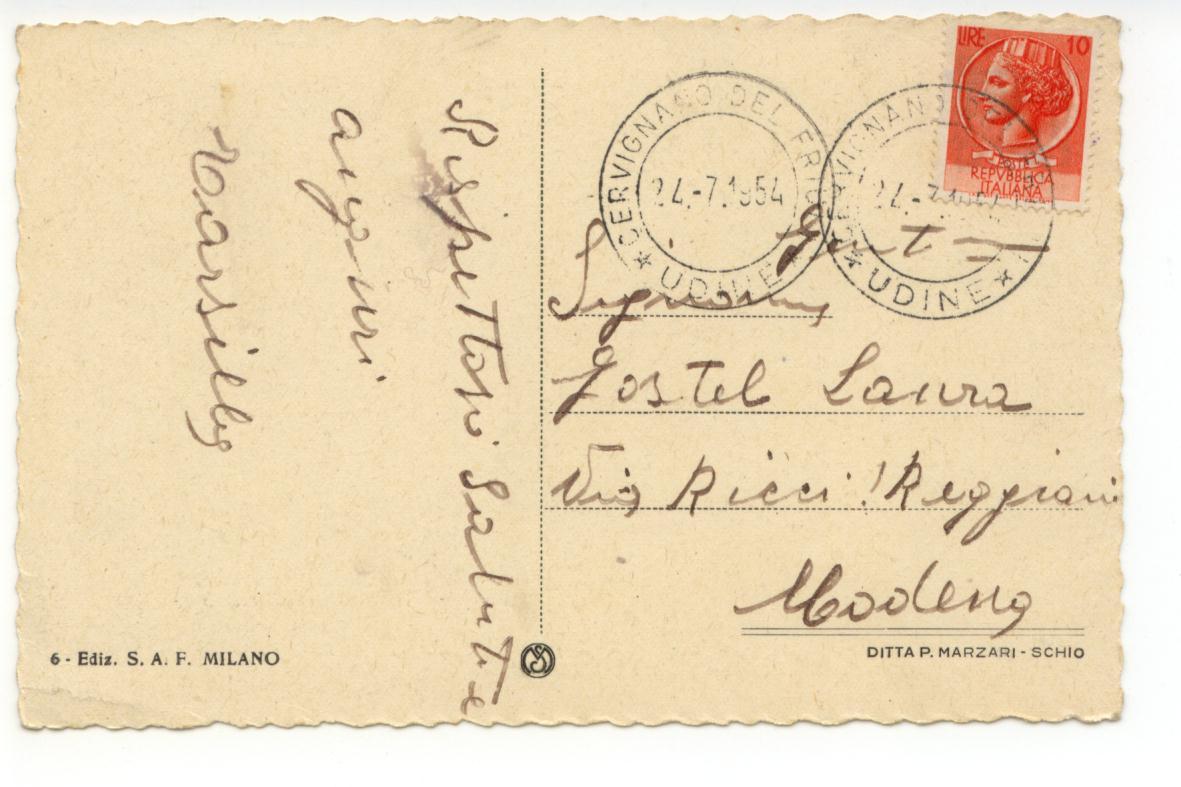 Rispettosi Saluti e
auguri
Marsilio
LIRE 10
POSTE
REPVBBLICA
ITALIANA
CERVIGNANO DEL FRIULI
24.-7.1954
★ UDINE ★
CERVIGNANO DEL FRIULI
24.-7.1954
★ UDINE ★
Gent
Signorina
Gostel Laura
Via Ricci Reggiani
Modena
6 - Ediz. S. A. F. MILANO
DITTA P. MARZARI - SCHIO